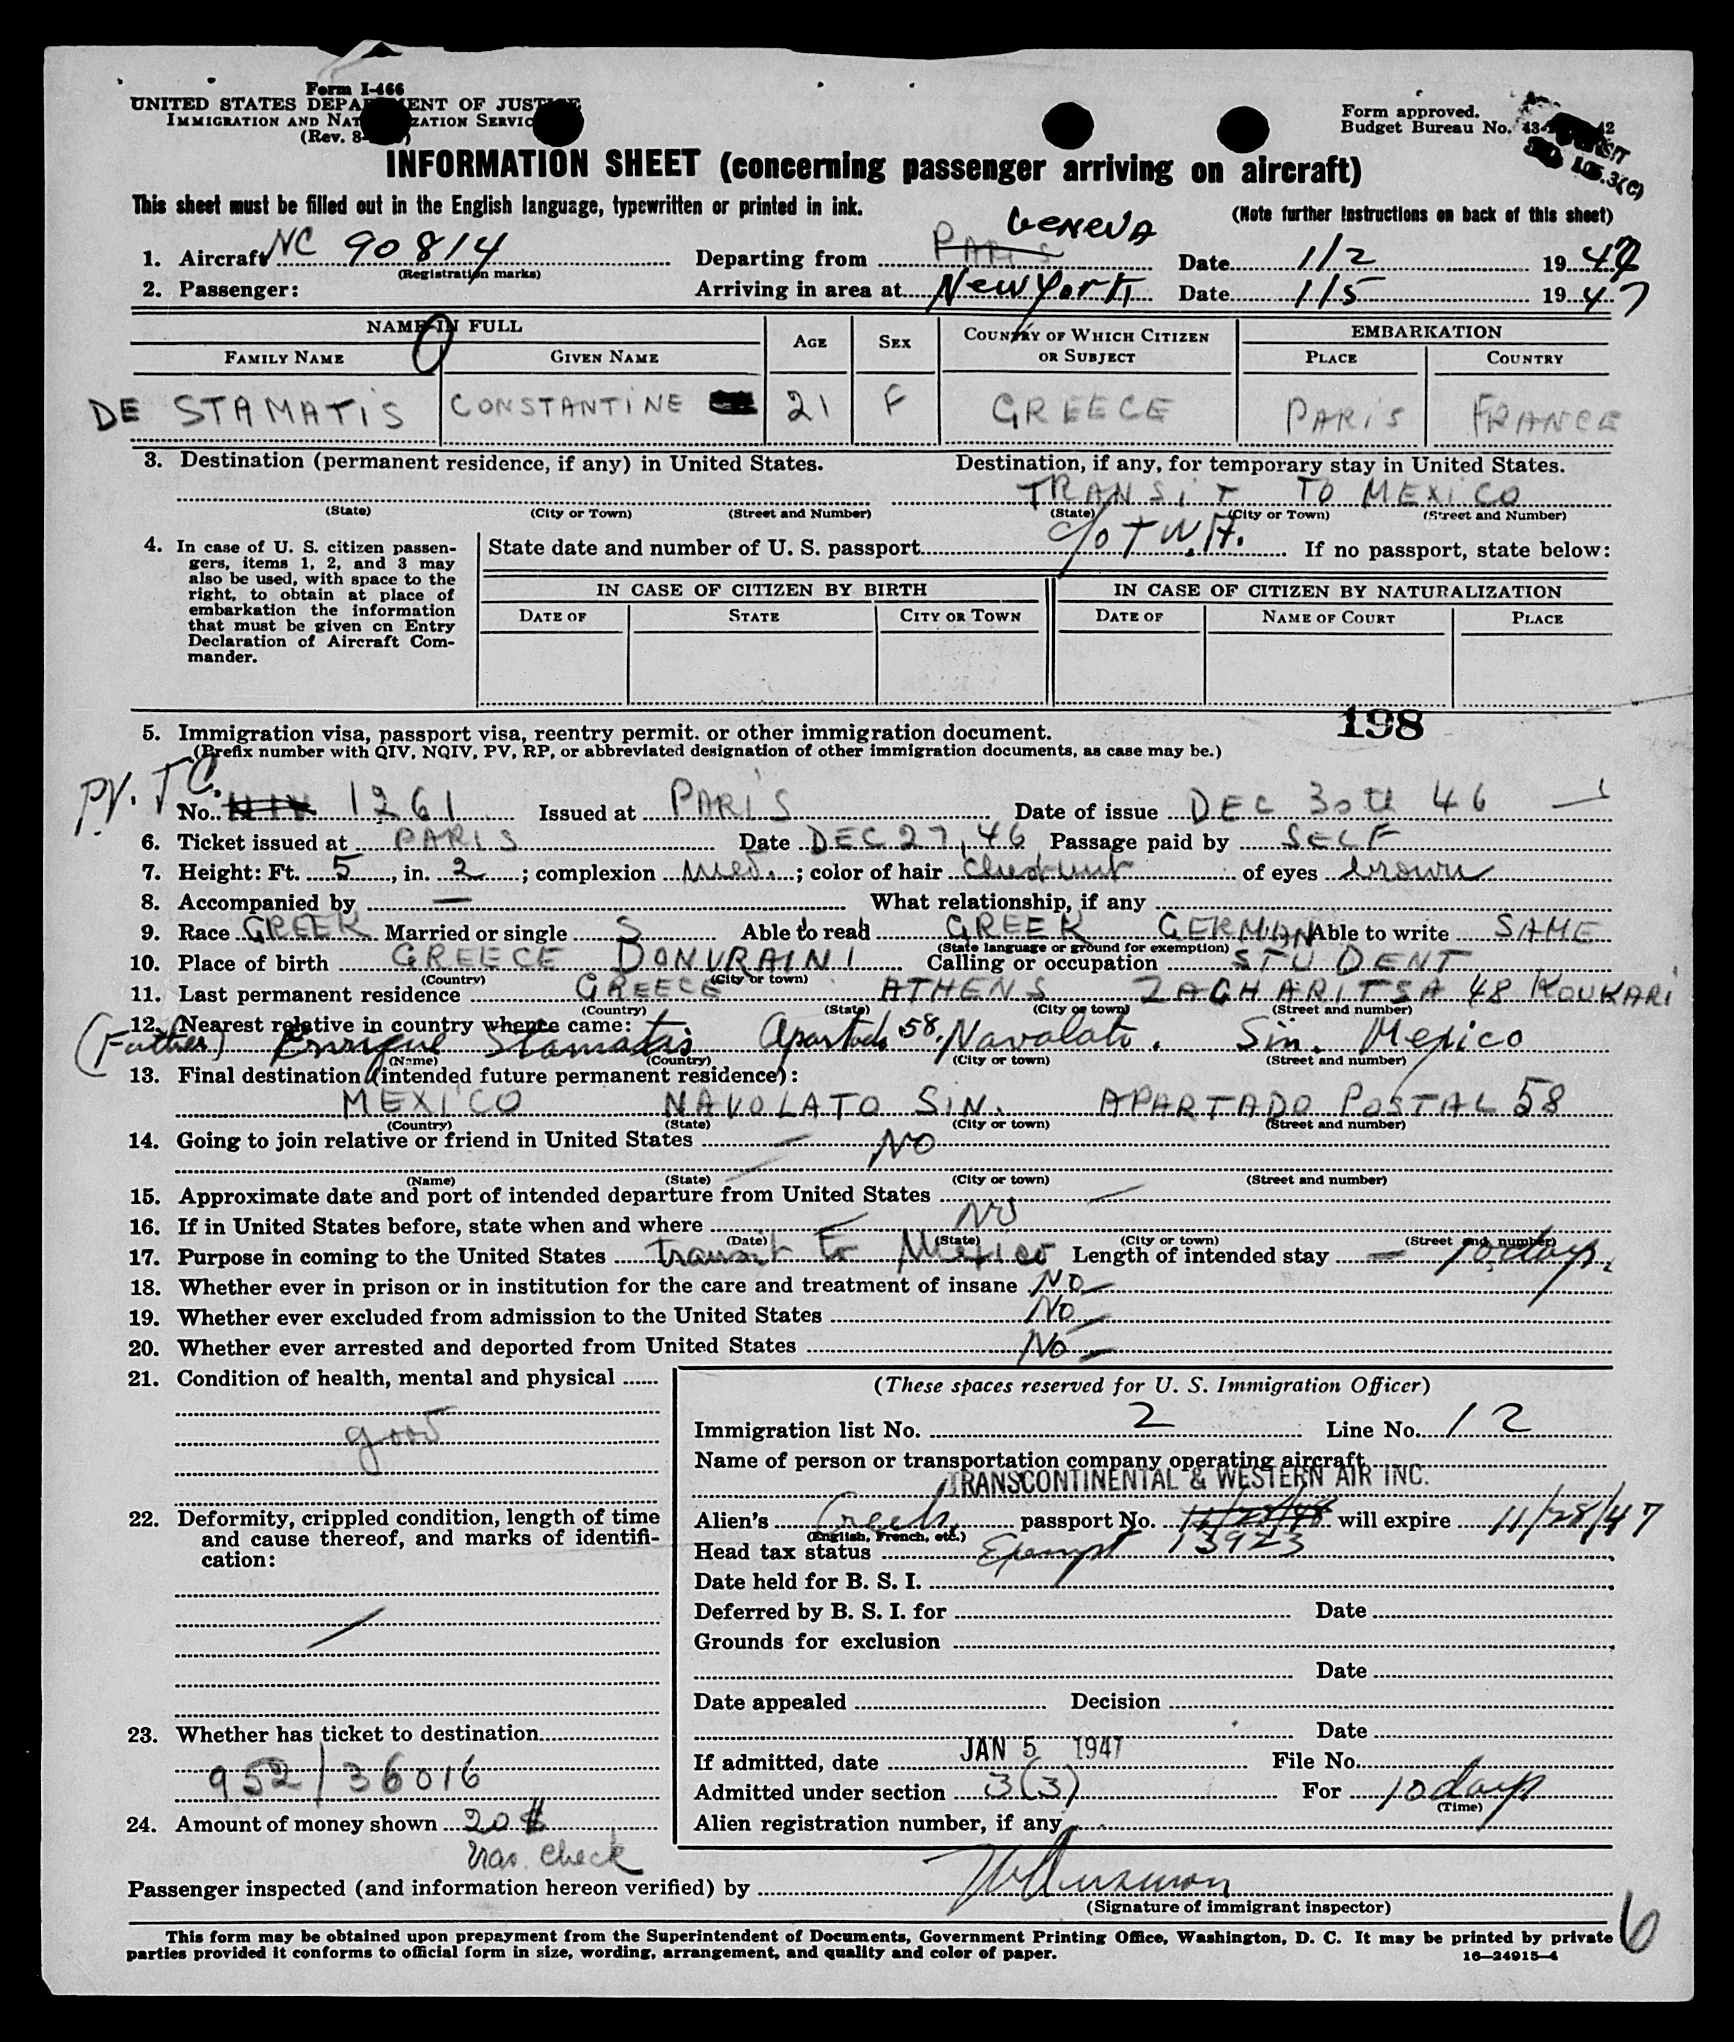 Form I-466
UNITED STATES DEPARTMENT OF JUSTICE
IMMIGRATION AND NATURALIZATION SERVICE
(Rev. 8-
Form approved.
Budget Bureau No. 43-
INFORMATION SHEET (concerning passenger arriving on aircraft)
This sheet must be filled out in the English language, typewritten or printed in ink.
(Note further instructions on back of this sheet)
1. Aircraft NC 90814 (Registration marks) Departing from PARIS GENEVA Date 1/2 1947
2. Passenger: Arriving in area at New York Date 1/5 1947
NAME IN FULL
FAMILY NAME GIVEN NAME AGE SEX COUNTRY OF WHICH CITIZEN OR SUBJECT EMBARKATION PLACE COUNTRY
DE STAMATIS CONSTANTINE 21 F GREECE PARIS FRANCE
3. Destination (permanent residence, if any) in United States. Destination, if any, for temporary stay in United States.
TRANSIT TO MEXICO
(State) (City or Town) (Street and Number) (State) (City or Town) (Street and Number)
c/o T W.A.
4. In case of U. S. citizen passen-
gers, items 1, 2, and 3 may
also be used, with space to the
right, to obtain at place of
embarkation the information
that must be given on Entry
Declaration of Aircraft Com-
mander.
State date and number of U. S. passport If no passport, state below:
IN CASE OF CITIZEN BY BIRTH IN CASE OF CITIZEN BY NATURALIZATION
DATE OF STATE CITY OR TOWN DATE OF NAME OF COURT PLACE
198
5. Immigration visa, passport visa, reentry permit. or other immigration document.
(Prefix number with QIV, NQIV, PV, RP, or abbreviated designation of other immigration documents, as case may be.)
PV. TC.
No. 1261 Issued at PARIS Date of issue DEC 30th 46
6. Ticket issued at PARIS Date DEC 27, 46 Passage paid by SELF
7. Height: Ft. 5, in. 2; complexion Med.; color of hair Chestnut of eyes brown
8. Accompanied by — What relationship, if any
9. Race GREEK Married or single S Able to read GREEK GERMAN Able to write SAME
(State language or ground for exemption)
10. Place of birth GREECE DONVRAINI Calling or occupation STUDENT
(Country) (City or town)
11. Last permanent residence GREECE ATHENS ZACHARITSA 48 KOUKARI
(Country) (State) (City or town) (Street and number)
12. Nearest relative in country whence came:
(Father) Enrique Stamatis Apartado 58, Navolato. Sin. Mexico
(Name) (Country) (City or town) (Street and number)
13. Final destination (intended future permanent residence):
MEXICO NAVOLATO SIN. APARTADO POSTAL 58
(Country) (State) (City or town) (Street and number)
14. Going to join relative or friend in United States — NO
(Name) (State) (City or town) (Street and number)
15. Approximate date and port of intended departure from United States —
16. If in United States before, state when and where — NO
(Date) (State) (City or town) (Street and number)
17. Purpose in coming to the United States transit to Mexico Length of intended stay — 10 days.
18. Whether ever in prison or in institution for the care and treatment of insane NO —
19. Whether ever excluded from admission to the United States NO —
20. Whether ever arrested and deported from United States NO —
21. Condition of health, mental and physical
good
22. Deformity, crippled condition, length of time
and cause thereof, and marks of identifi-
cation:
23. Whether has ticket to destination
952/36016
24. Amount of money shown 20 $
Trav. Check
(These spaces reserved for U. S. Immigration Officer)
Immigration list No. 2 Line No. 12
Name of person or transportation company operating aircraft
TRANSCONTINENTAL & WESTERN AIR INC.
Alien's Greek passport No. 13923 will expire 11/28/47
(English, French, etc.)
Head tax status Exempt
Date held for B. S. I.
Deferred by B. S. I. for Date
Grounds for exclusion
Date
Date appealed Decision
Date
If admitted, date JAN 5 1947 File No.
Admitted under section 3(3) For 10 days
(Time)
Alien registration number, if any
Passenger inspected (and information hereon verified) by
(Signature of immigrant inspector)
6
This form may be obtained upon prepayment from the Superintendent of Documents, Government Printing Office, Washington, D. C. It may be printed by private
parties provided it conforms to official form in size, wording, arrangement, and quality and color of paper.
16—24915-4